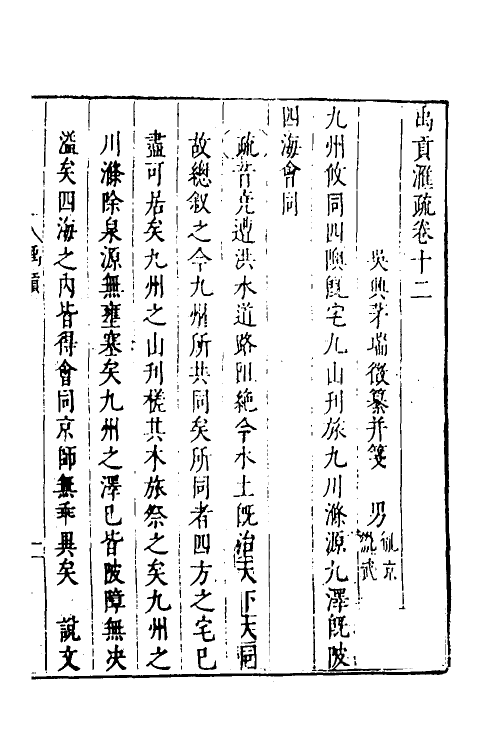 禹貢滙疏卷十二
吳興茅瑞徵纂并箋 男胤京胤武
九州攸同四隩旣宅九山刊旅九川滌源九澤旣陂
四海會同
疏昔堯遭洪水道路阻絶今水土旣治天下大同
故總叙之今九州所共同矣所同者四方之宅已
盡可居矣九州之山刊槎其木旅祭之矣九州之
川滌除泉源無壅塞矣九州之澤已皆陂障無决
溢矣四海之内皆得會同京師無乖異矣 說文
禹貢
一